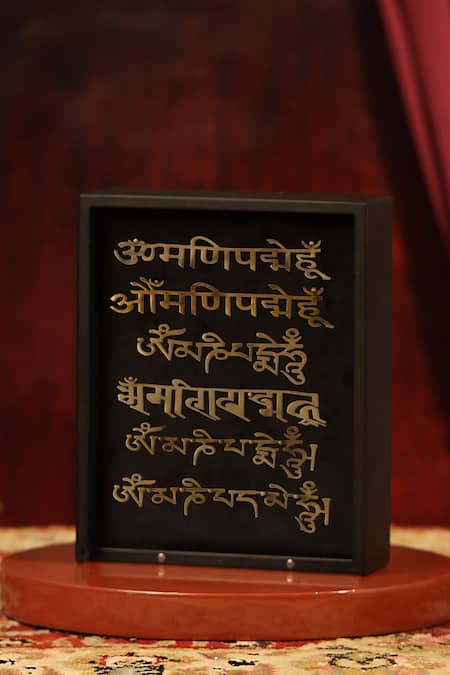 ॐमणिपद्मेहूँ
ओँमणिपद्मेहूँ
ཨོཾ་མ་ཎི་པདྨེ་ཧཱུྃ
ཨོཾ་མ་ཎི་པདྨེ་ཧཱུྃ
ཨོཾ་མ་ཎི་པད་མེ་ཧཱུྃ